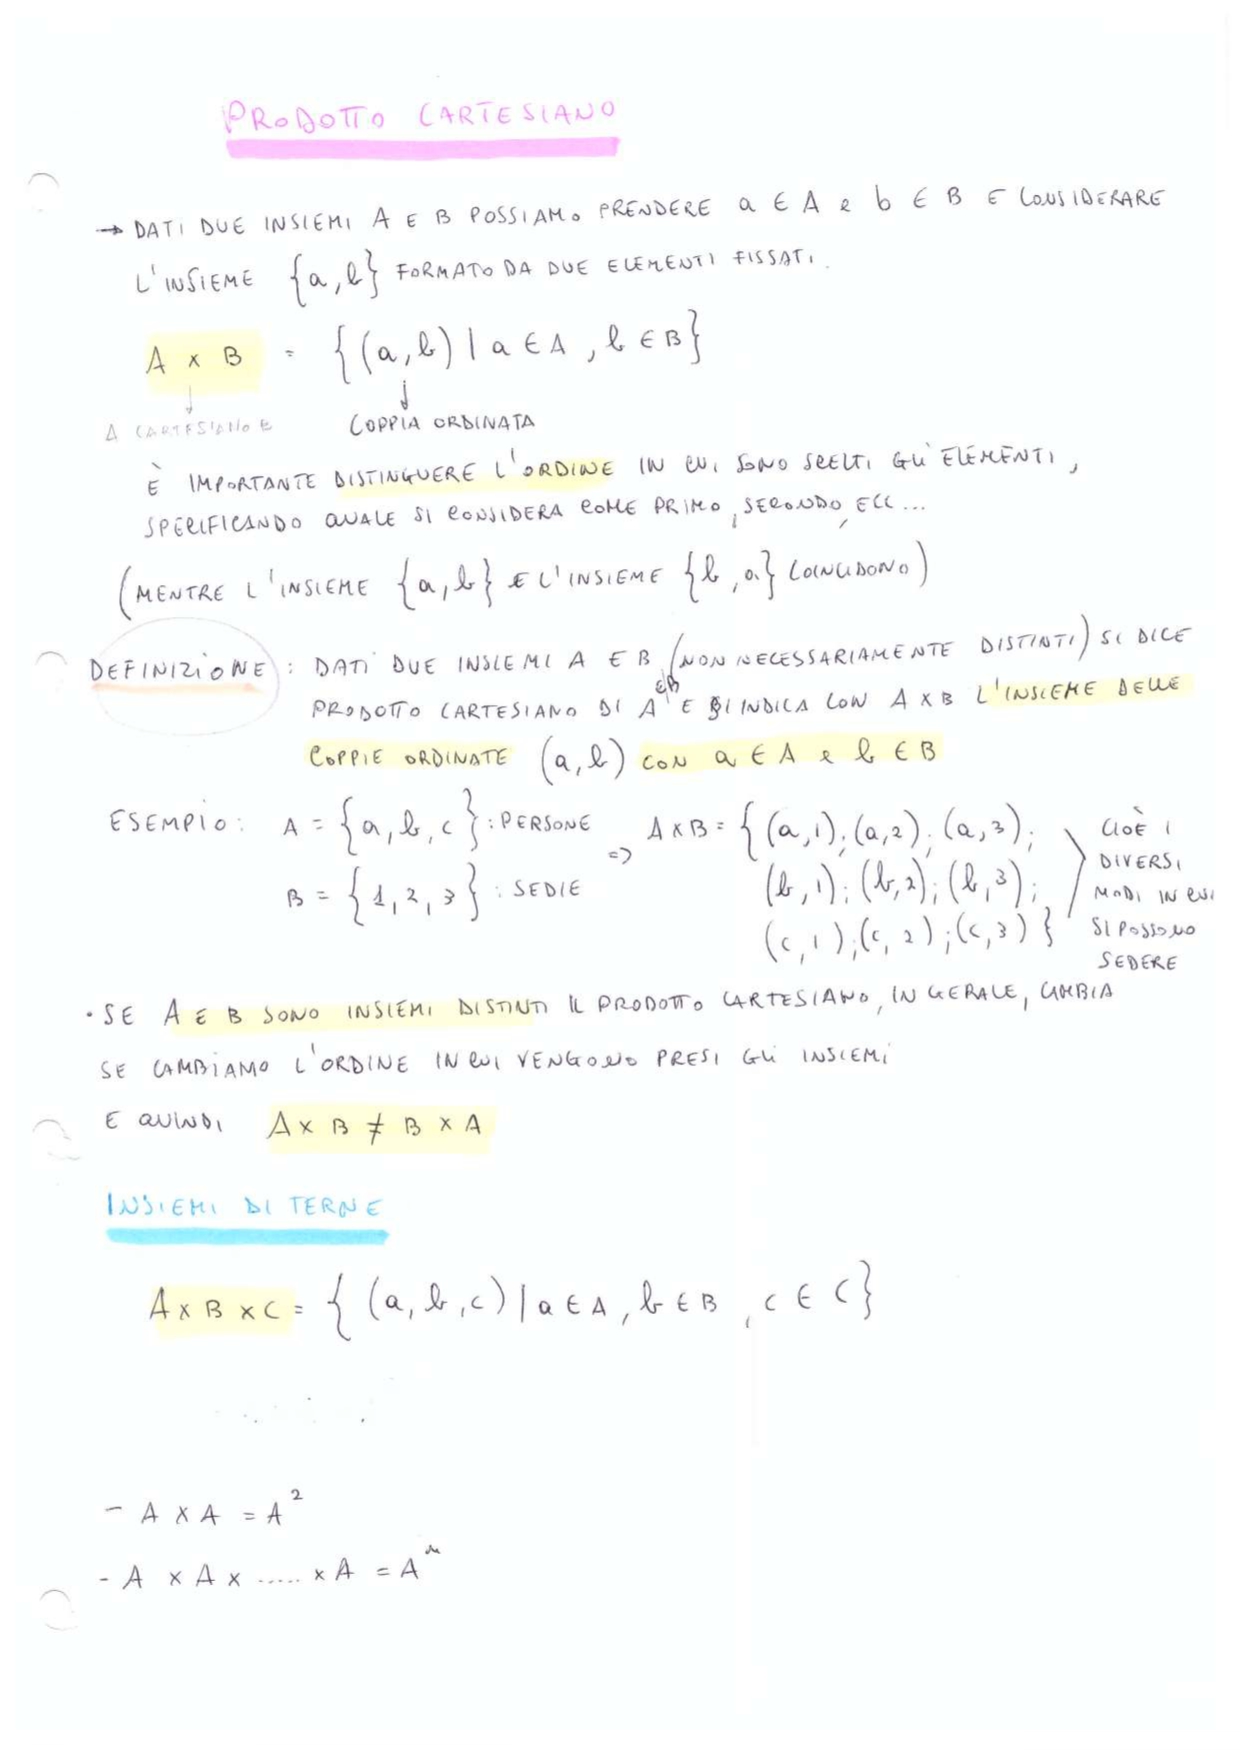 PRODOTTO CARTESIANO
→ DATI DUE INSIEMI A E B POSSIAMO PRENDERE a ∈ A e b ∈ B E CONSIDERARE
L'INSIEME {a, b} FORMATO DA DUE ELEMENTI FISSATI.
A × B = {(a, b) | a ∈ A, b ∈ B}
↓ ↓
A CARTESIANO B COPPIA ORDINATA
È IMPORTANTE DISTINGUERE L'ORDINE IN CUI SONO SCELTI GLI ELEMENTI,
SPECIFICANDO QUALE SI CONSIDERA COME PRIMO, SECONDO, ECC...
(MENTRE L'INSIEME {a, b} E L'INSIEME {b, a} COINCIDONO)
DEFINIZIONE: DATI DUE INSIEMI A E B (NON NECESSARIAMENTE DISTINTI) SI DICE
PRODOTTO CARTESIANO DI A E B E SI INDICA CON A × B L'INSIEME DELLE
COPPIE ORDINATE (a, b) CON a ∈ A e b ∈ B
ESEMPIO: A = {a, b, c}: PERSONE => A × B = {(a, 1); (a, 2); (a, 3);
B = {1, 2, 3}: SEDIE (b, 1); (b, 2); (b, 3);
(c, 1); (c, 2); (c, 3)}
CIOÈ I
DIVERSI
MODI IN CUI
SI POSSONO
SEDERE
• SE A E B SONO INSIEMI DISTINTI IL PRODOTTO CARTESIANO, IN GERALE, CAMBIA
SE CAMBIAMO L'ORDINE IN CUI VENGONO PRESI GLI INSIEMI
E QUINDI A × B ≠ B × A
INSIEMI DI TERNE
A × B × C = {(a, b, c) | a ∈ A, b ∈ B, c ∈ C}
- A × A = A²
- A × A × ..... × A = Aⁿ